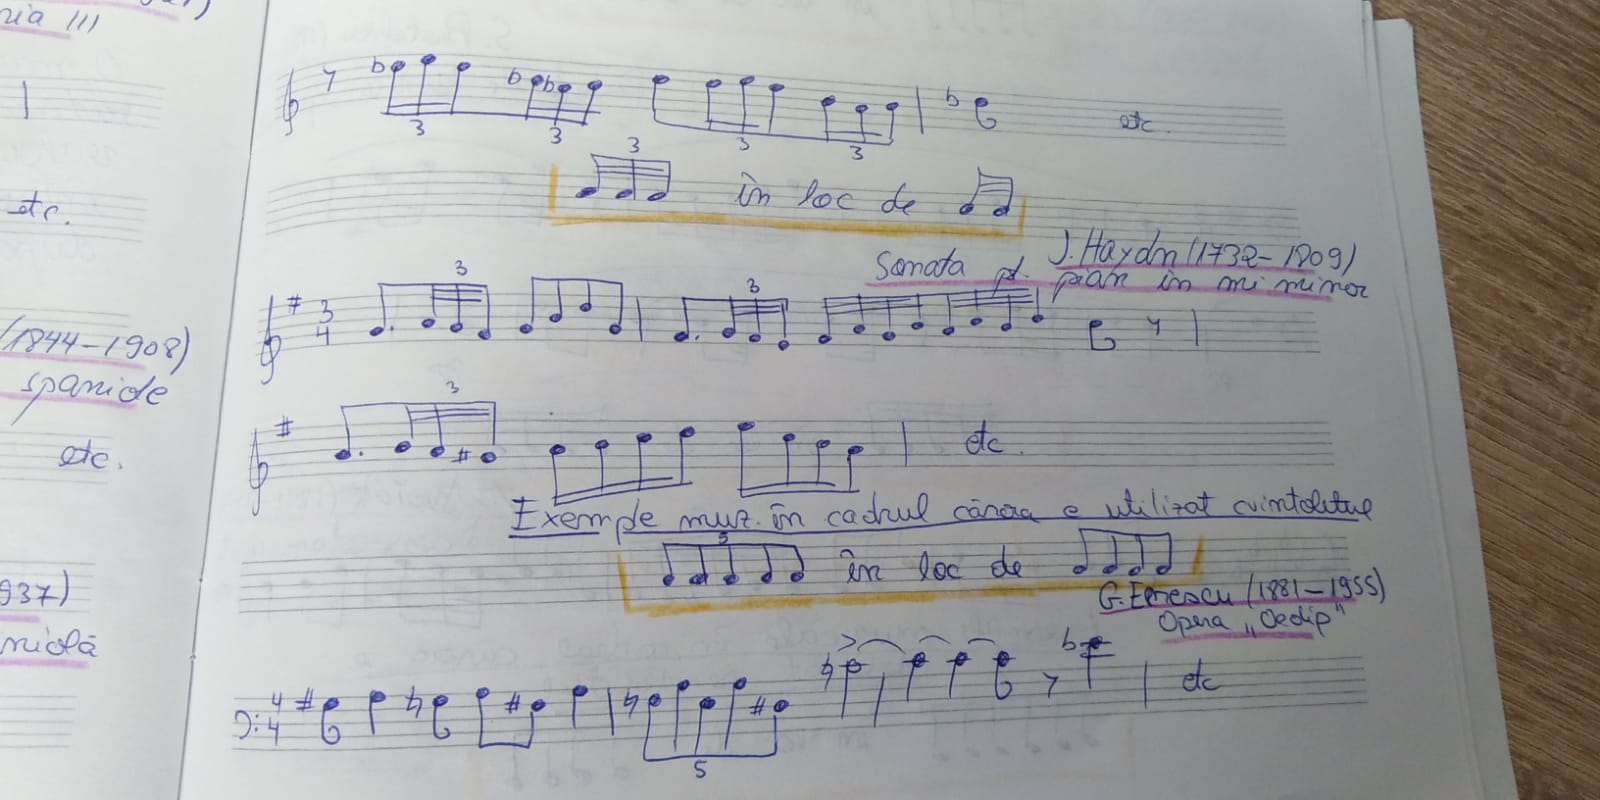 ria III
3
3
3
3
etc.
3
în loc de
etc.
J. Haydn (1732-1809)
Sonata pt. pian în mi minor
3
4
3
3
(1844-1908)
spaniole
3
etc.
etc.
Exemple muz. în cadrul cărora e utilizat cvintoletul
5
în loc de
937)
G. Enescu (1881-1955)
Opera „Oedip"
4
4
etc
5